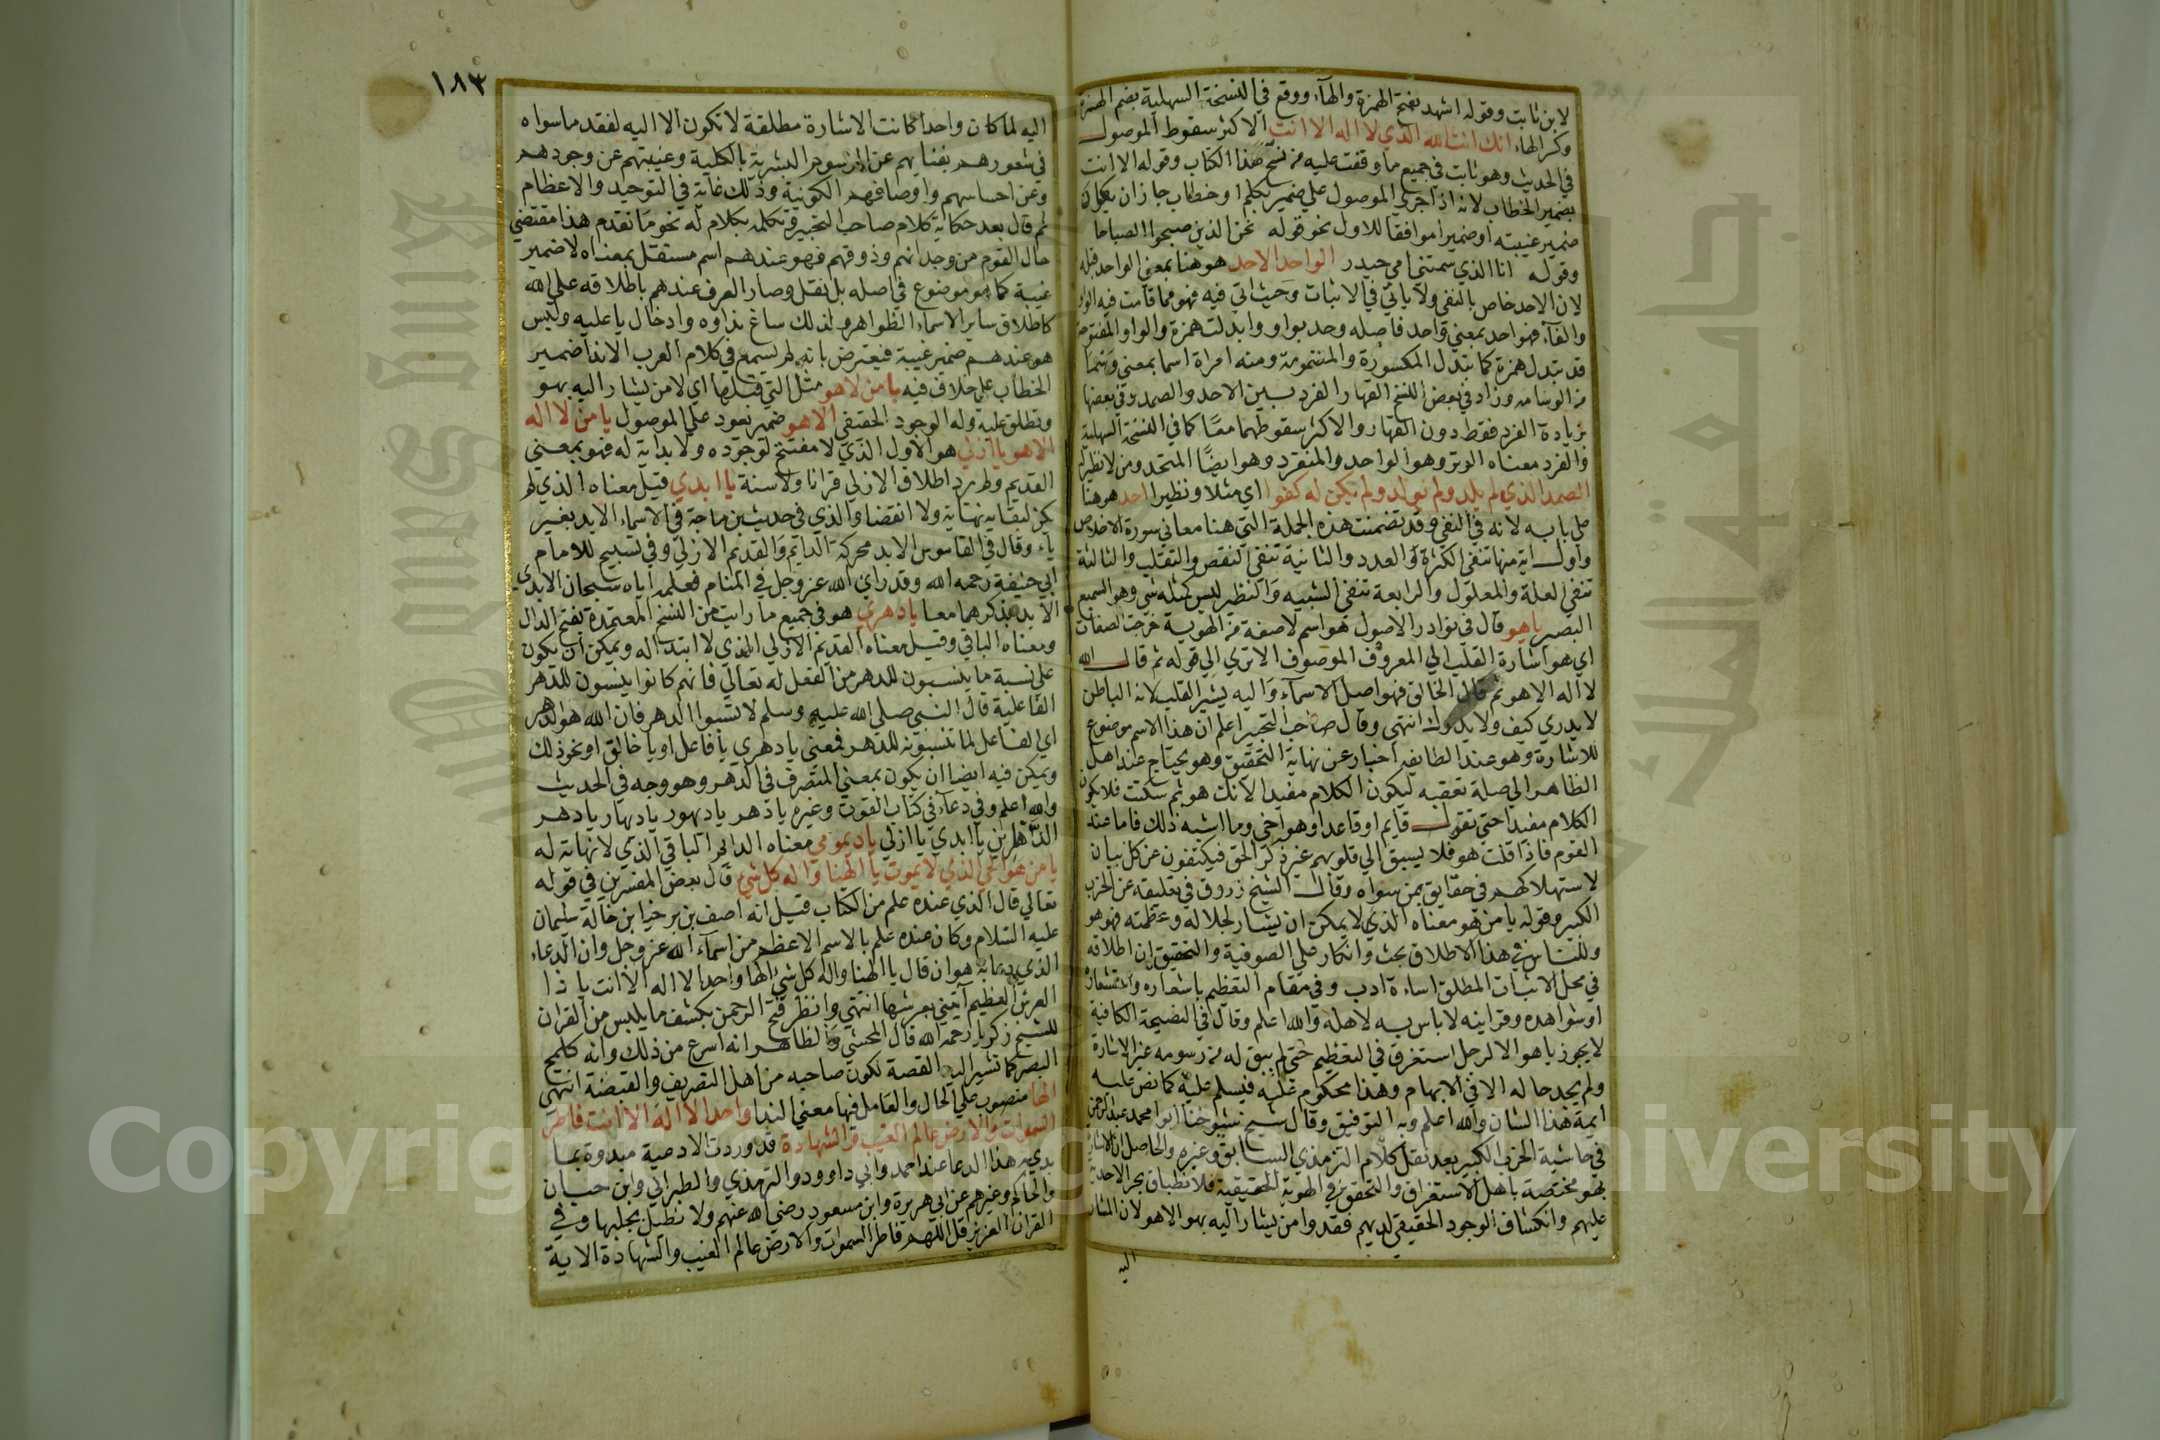 لابن ثابت وقوله اشهد بفتح الهمزة والهآء ووقع في النسخة السهلية بضم الهمزة
وكسر الهاء انك انت الله الذي لا اله الا انت الاكثر سقوط الموصول
في الحديث وهو ثابت في جميع ما وقفت عليه من نسخ هذا الكتاب وقوله الا انت
بضمير الخطاب لانه اذا جري الموصول علي ضمير تكلم او خطاب جاز ان يكون
ضمير غيبته او ضميرا موافقا للاول نحو قوله نحن الذين صبحوا الصباحا
وقوله انا الذي سمتني امي حيدر الواحد الاحد هو هنا بمعني الواحد قبله
لان الاحد خاص بالنفي ولا ياتي في الاثبات وحيث اتي فيه فهو مما قامت فيه الواو
والفآء فهو احد بمعني واحد فاصله وحد بواو وابدلت همزة والواو المفتوحة
قد تبدل همزة كما تبدل المكسورة والمضمومة ومنه امراة اسما بمعني وسما
من الوسامه وزاد في بعض النسخ القهار الفرد بين الاحد والصمد وفي بعضها
بزيادة الفرد فقط دون القهار والاكثر سقوطهما معا كما في النسخة السهلية
والفرد معناه الوتر وهو الواحد والمنفرد وهو ايضا المتحد ومن لا نظير له
الصمد الذي لم يلد ولم يولد ولم يكن له كفوا اي مثلا ونظيرا احد هو هنا
علي بابه لانه في النفي وقد تضمنت هذه الجملة التي هنا معاني سورة الاخلاص
واول اية منها تنفي الكثرة والعدد والثانية تنفي النقص والتقلب والثالثة
تنفي العلة والمعلول والرابعة تنفي الشبيه والنظير ليس كمثله شي وهو السميع
البصير ياهو قال في نوادر الاصول هو اسم لا صفة من الهوية خرجت الصفات
اي هو اشارة القلب الي المعروف الموصوف الا تري الي قوله ثم قال الله
لا اله الا هو ثم قال الخالق فهو اصل الاسمآء واليه يشير القلب لانه الباطن
لا يدري كيف ولا يدرك انتهي وقال صاحب التحبير اعلم ان هذا الاسم موضوع
للاشارة وهو عند الطايفه اخبار عن نهاية التحقيق وهو يحتاج عند اهل
الظاهر الي صلة تعقبه ليكون الكلام مفيدا لانك هو ثم سكت فلا يكون
الكلام مفيدا حتي تقول قايم او قاعد او هو اخي وما اشبه ذلك فاما عند
القوم فاذا قلت هو فلا يسبق الي قلوبهم غير ذكر الحق فيكتفون عن كل بيان
لاستهلاكهم في حقايق بمن سواه وقال الشيخ زروق في تعليقه عن الحزب
الكبير وقوله يا من هو معناه الذي لا يمكن ان يشار لجلاله وعظمته فهو هو
وللناس في هذا الاطلاق بحث وانكار علي الصوفية والتحقيق ان اطلاقه
في محل الاثبات المطلق اساءة ادب وفي مقام التعظيم باشعاره واحتشعاره
او شواهده وقراينه لا باس به لاهله والله اعلم وقال في النصيحة الكافية
لا يجوز ياهو الا لرجل استغرق في التعظيم حتي لم يبق له من رسومه غير الاشارة
ولم يجد حاله الا في الابهام وهذا محكوم عليه فيسلم عليه كما نص عليه
ايمة هذا الشان والله اعلم وبه التوفيق وقال شيخ شيوخنا ابو محمد عبد الرحمن
في حاشية الحزب الكبير بعد نقل كلام الترمذي السابق وغيره والحاصل ان الاشارة
بهو مختصة باهل الاستغراق والتحقق في الهوية الحقيقية فلانطباق بحر الاحدية
عليهم وانكشاف الوجود الحقيقي لديهم فقدوا من يشار اليه بهو الا هو لان المشار
اليه
١٨٣
اليه لما كان واحدا كانت الاشارة مطلقة لا تكون الا اليه لفقد ما سواه
في شعورهم بفنايهم عن الرسوم البشرية بالكلية وغيبتهم عن وجودهم
وعن احساسهم واوصافهم الكونية وذلك غاية في التوحيد والاعظام
ثم قال بعد حكاية كلام صاحب التحبير وتكلمه بكلام له نحو ما تقدم هذا مقتضي
حال القوم من وجدانهم وذوقهم فهو عندهم اسم مستقل بمعناه لا ضمير
غيبة كما هو موضوع في اصله بل نقل وصار العرف عندهم باطلاقه علي الله
كاطلاق ساير الاسماء الظواهر ولذلك ساغ نداوه وادخال يا عليه وليس
هو عندهم ضمير غيبة فيعترض بانه لم يسمع في كلام العرب الا ندا ضمير
الخطاب علي خلاف فيه يا من لا هو مثل التي قبلها اي لا من يشار اليه بهو
ويطلق عليه وله الوجود الحقيقي الا هو ضمير يعود علي الموصول يا من لا اله
الا هو يا ازلي هو الاول الذي لا مفتتح لوجوده ولا بداية له فهو بمعني
القديم ولم يرد اطلاق الازلي قرانا ولا سنة يا ابدي قيل معناه الذي لم
يكن لبقايه نهاية ولا انقضا والذي في حديث بن ماجة في الاسماء الابد بغير
ياء وقال في القاموس الابد محركة الدايم والقديم الازلي وفي تسبيح للامام
ابي حنيفة رحمه الله وقد راي الله عز وجل في المنام فعلمه اياه سبحان الابدي
الابد بذكرهما معا يا دهري هو في جميع ما رايت من النسخ المعتمدة بفتح الدال
ومعناه الباقي وقيل معناه القديم الازلي الذي لا ابتداله ويمكن ان يكون
علي نسبة ما ينسبون للدهر من الفعل له تعالي فانهم كانوا ينسبون للدهر
الفاعلية قال النبي صلي الله عليه وسلم لا تسبوا الدهر فان الله هو الدهر
اي الفاعل لما تنسبونه للدهر فمعني يا دهري يا فاعل او يا خالق او نحو ذلك
ويمكن فيه ايضا ان يكون بمعني المتصرف في الدهر وهو وجه في الحديث
والله اعلم وفي دعآء في كتاب القوت وغيره يا دهر يا ديهور يا ديهار يا دهر
الدهرين يا ابدي يا ازلي يا ديمومي معناه الدايم الباقي الذي لا نهاية له
يا من هو الحي الذي لا يموت يا الهنا واله كل شي قال بعض المفسرين في قوله
تعالي قال الذي عنده علم من الكتاب قيل انه اصف بن برخيا بن خالة سليمان
عليه السلام وكان عنده علم بالاسم الاعظم من اسمآء الله عز وجل وان الدعاء
الذي دعا به هو ان قال يا الهنا واله كل شي الها واحدا لا اله الا انت يا ذا
العرش العظيم آتيني بعرشها انتهي وانظر فتح الرحمن بكشف ما يلبس من القران
للشيخ زكريا رحمه الله قال المحشي والظاهر انه اسرع من ذلك وانه كلمح
البصر كما تشير اليه القصة لكون صاحبه من اهل التصريف والقبضة انتهي
الها منصوب علي الحال والعامل فيها معني الندا واحدا لا اله الا انت فاطر
السموات والارض عالم الغيب والشهادة قد وردت الادعية مبدوة بما
بدي به هذا الدعا عند احمد وابي داوود والترمذي والطبراني وابن حبان
والحاكم وغيرهم عن ابي هريرة وابن مسعود رضي الله عنهم ولا نطيل بجلبها وفي
القران العزيز قل اللهم فاطر السموات والارض عالم الغيب والشهادة الاية